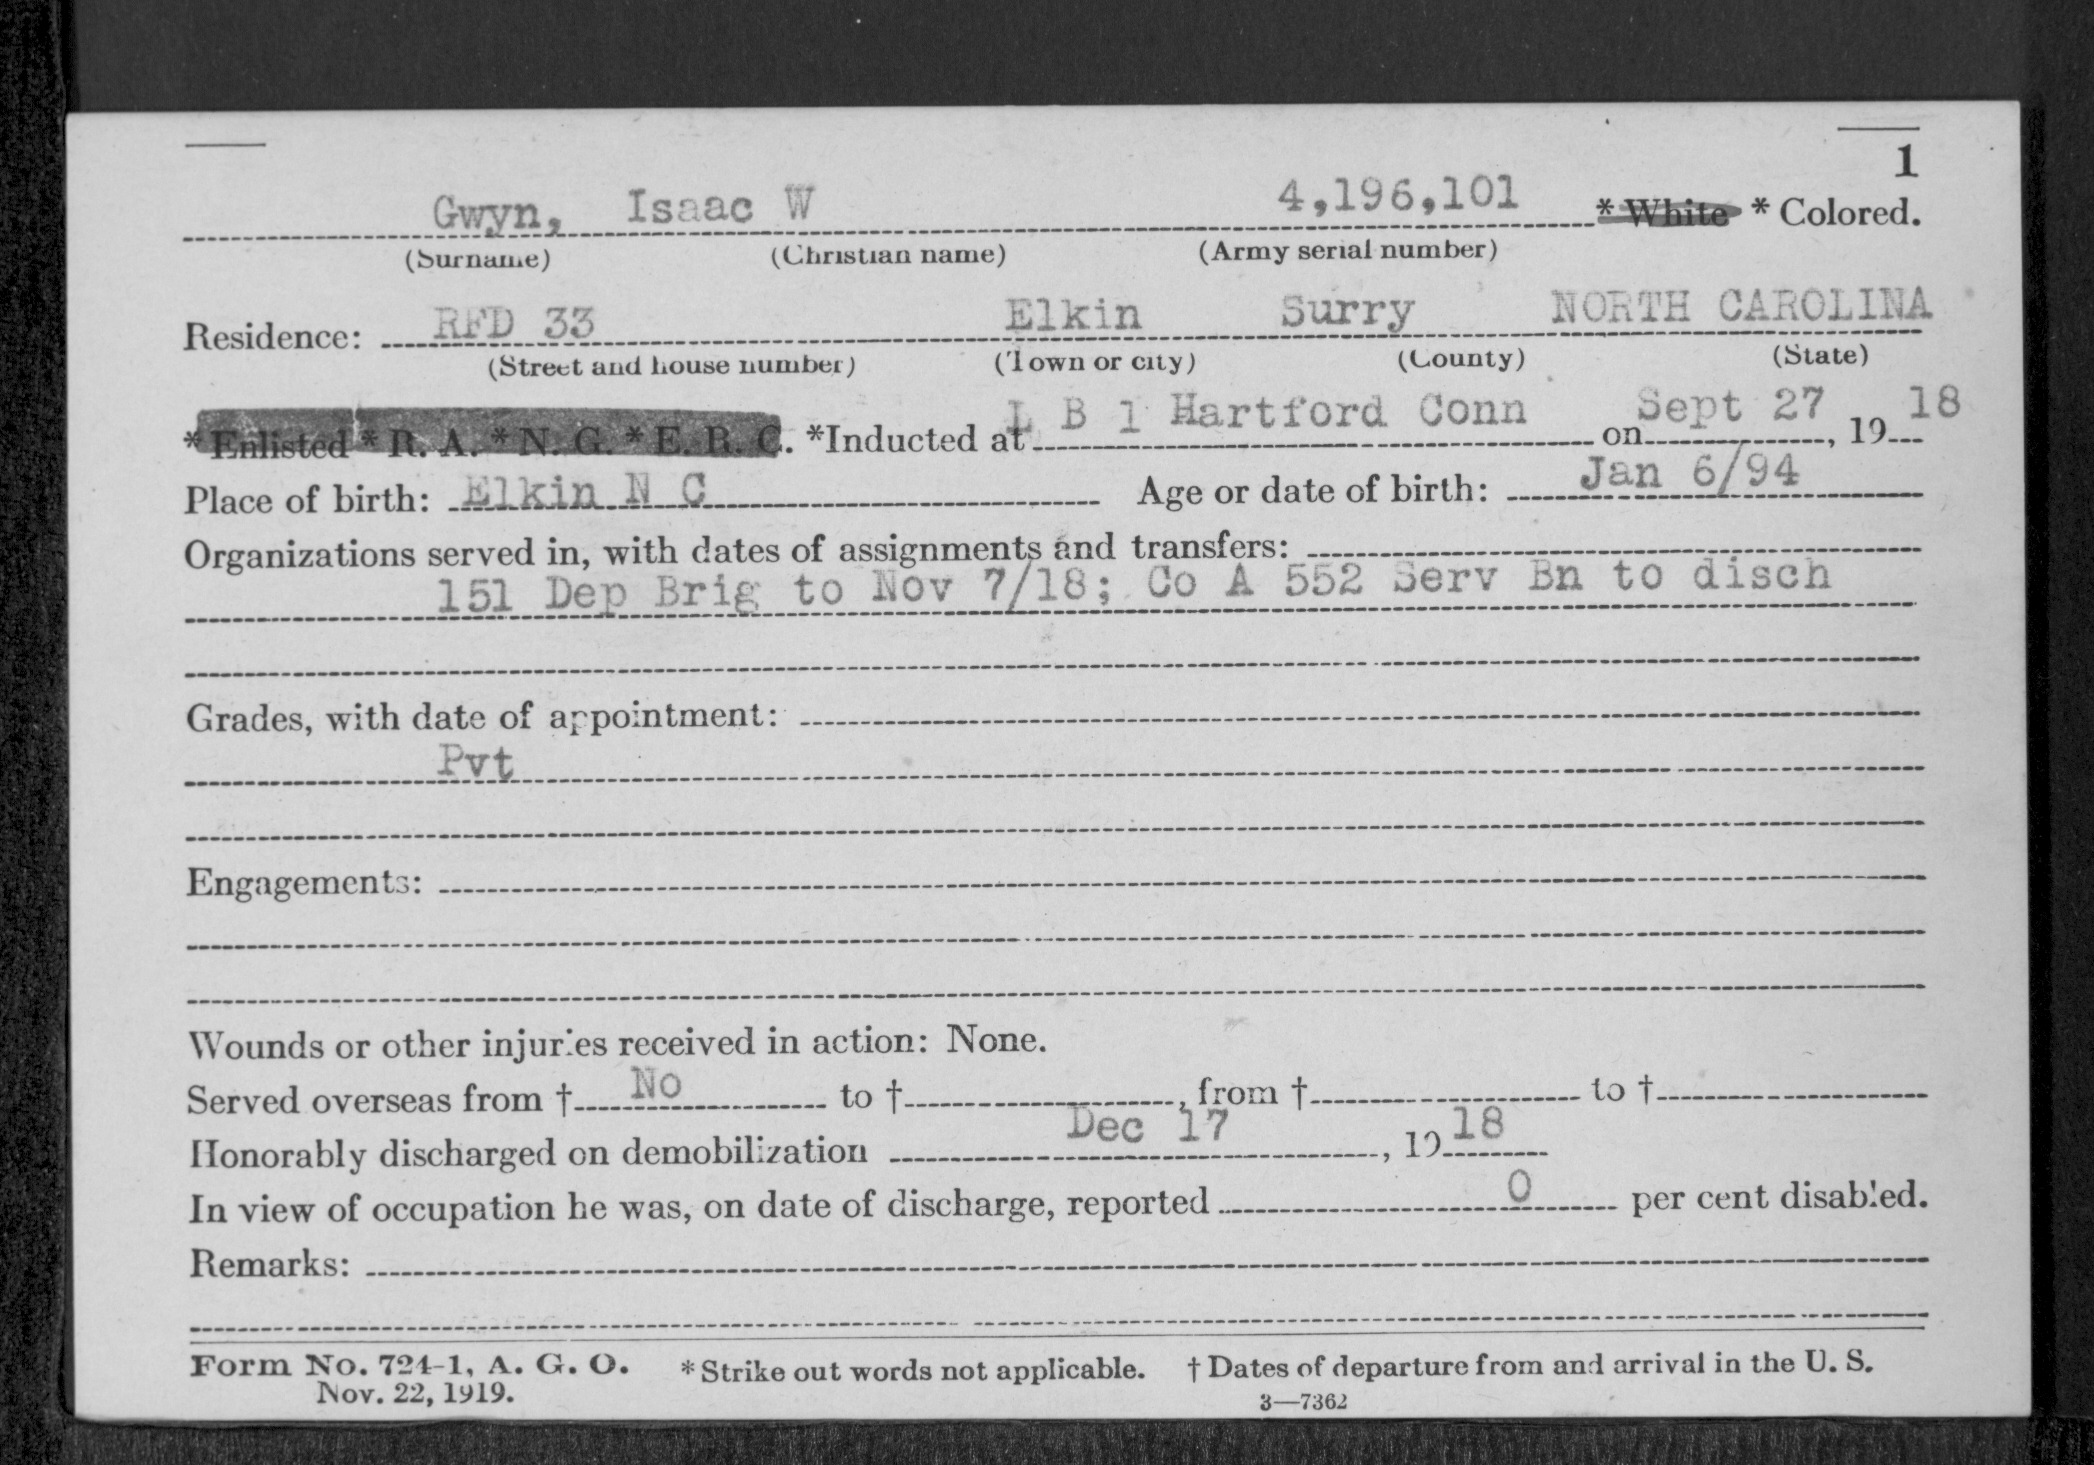 1
Gwyn, Isaac W 4,196,101 * White * Colored.
(Surname) (Christian name) (Army serial number)
Residence: RFD 33 Elkin Surry NORTH CAROLINA
(Street and house number) (Town or city) (County) (State)
* Enlisted * R. A. * N. G. * E. R. C. *Inducted at L B 1 Hartford Conn on Sept 27, 1918
Place of birth: Elkin N C Age or date of birth: Jan 6/94
Organizations served in, with dates of assignments and transfers:
151 Dep Brig to Nov 7/18; Co A 552 Serv Bn to disch
Grades, with date of appointment:
Pvt
Engagements:
Wounds or other injuries received in action: None.
Served overseas from † No to †, from † to †
Honorably discharged on demobilization Dec 17, 1918
In view of occupation he was, on date of discharge, reported 0 per cent disabled.
Remarks:
Form No. 724-1, A. G. O. * Strike out words not applicable. † Dates of departure from and arrival in the U. S.
Nov. 22, 1919. 3—7362